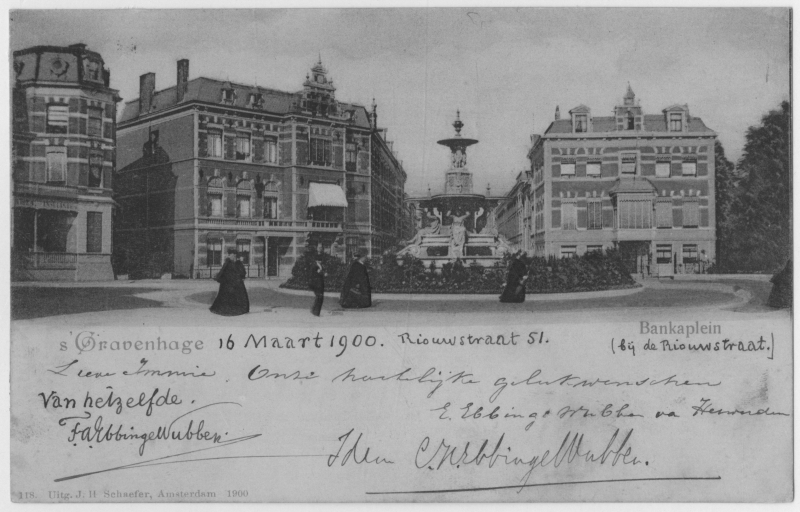 s'Gravenhage 16 Maart 1900. Riouwstraat 51. Bankaplein
(bij de Riouwstraat.)
Lieve Immie. Onze hartelijke gelukwenschen
Van hetzelfde. E. Ebbinge Wubben va Heusden
F.A. Ebbinge Wubben.
Idem C.H. Ebbinge Wubben.
118. Uitg. J. H Schaefer, Amsterdam 1900